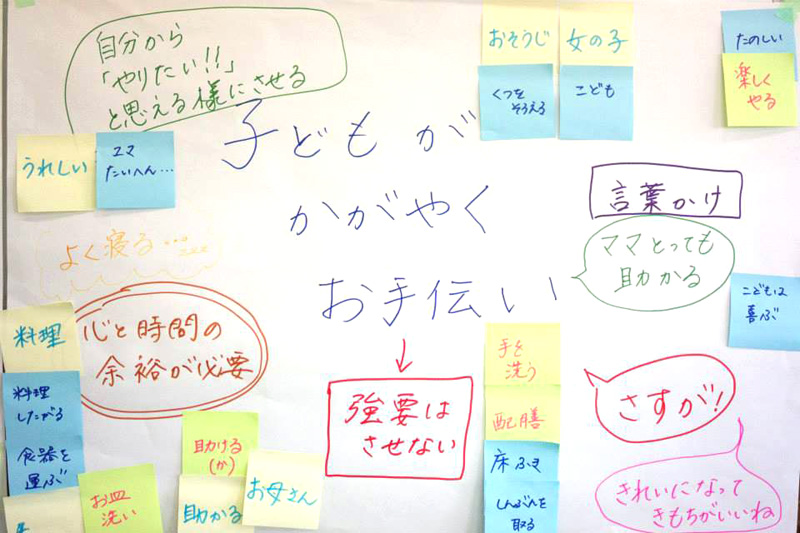 自分から
「やりたい!!」
と思える様にさせる
おそうじ
女の子
たのしい
くつを
そろえる
こども
楽しく
やる
うれしい
ママ
たいへん…
子どもが
かがやく
お手伝い
言葉かけ
ママとっても
助かる
よく寝る…zzz
こどもは
喜ぶ
心と時間の
余裕が必要
料理
料理
したがる
食器を
運ぶ
お皿
洗い
助ける
(か)
助かる
お母さん
強要は
させない
手を
洗う
配膳
床ふき
しんぶんを
取る
さすが!
きれいになって
きもちがいいね